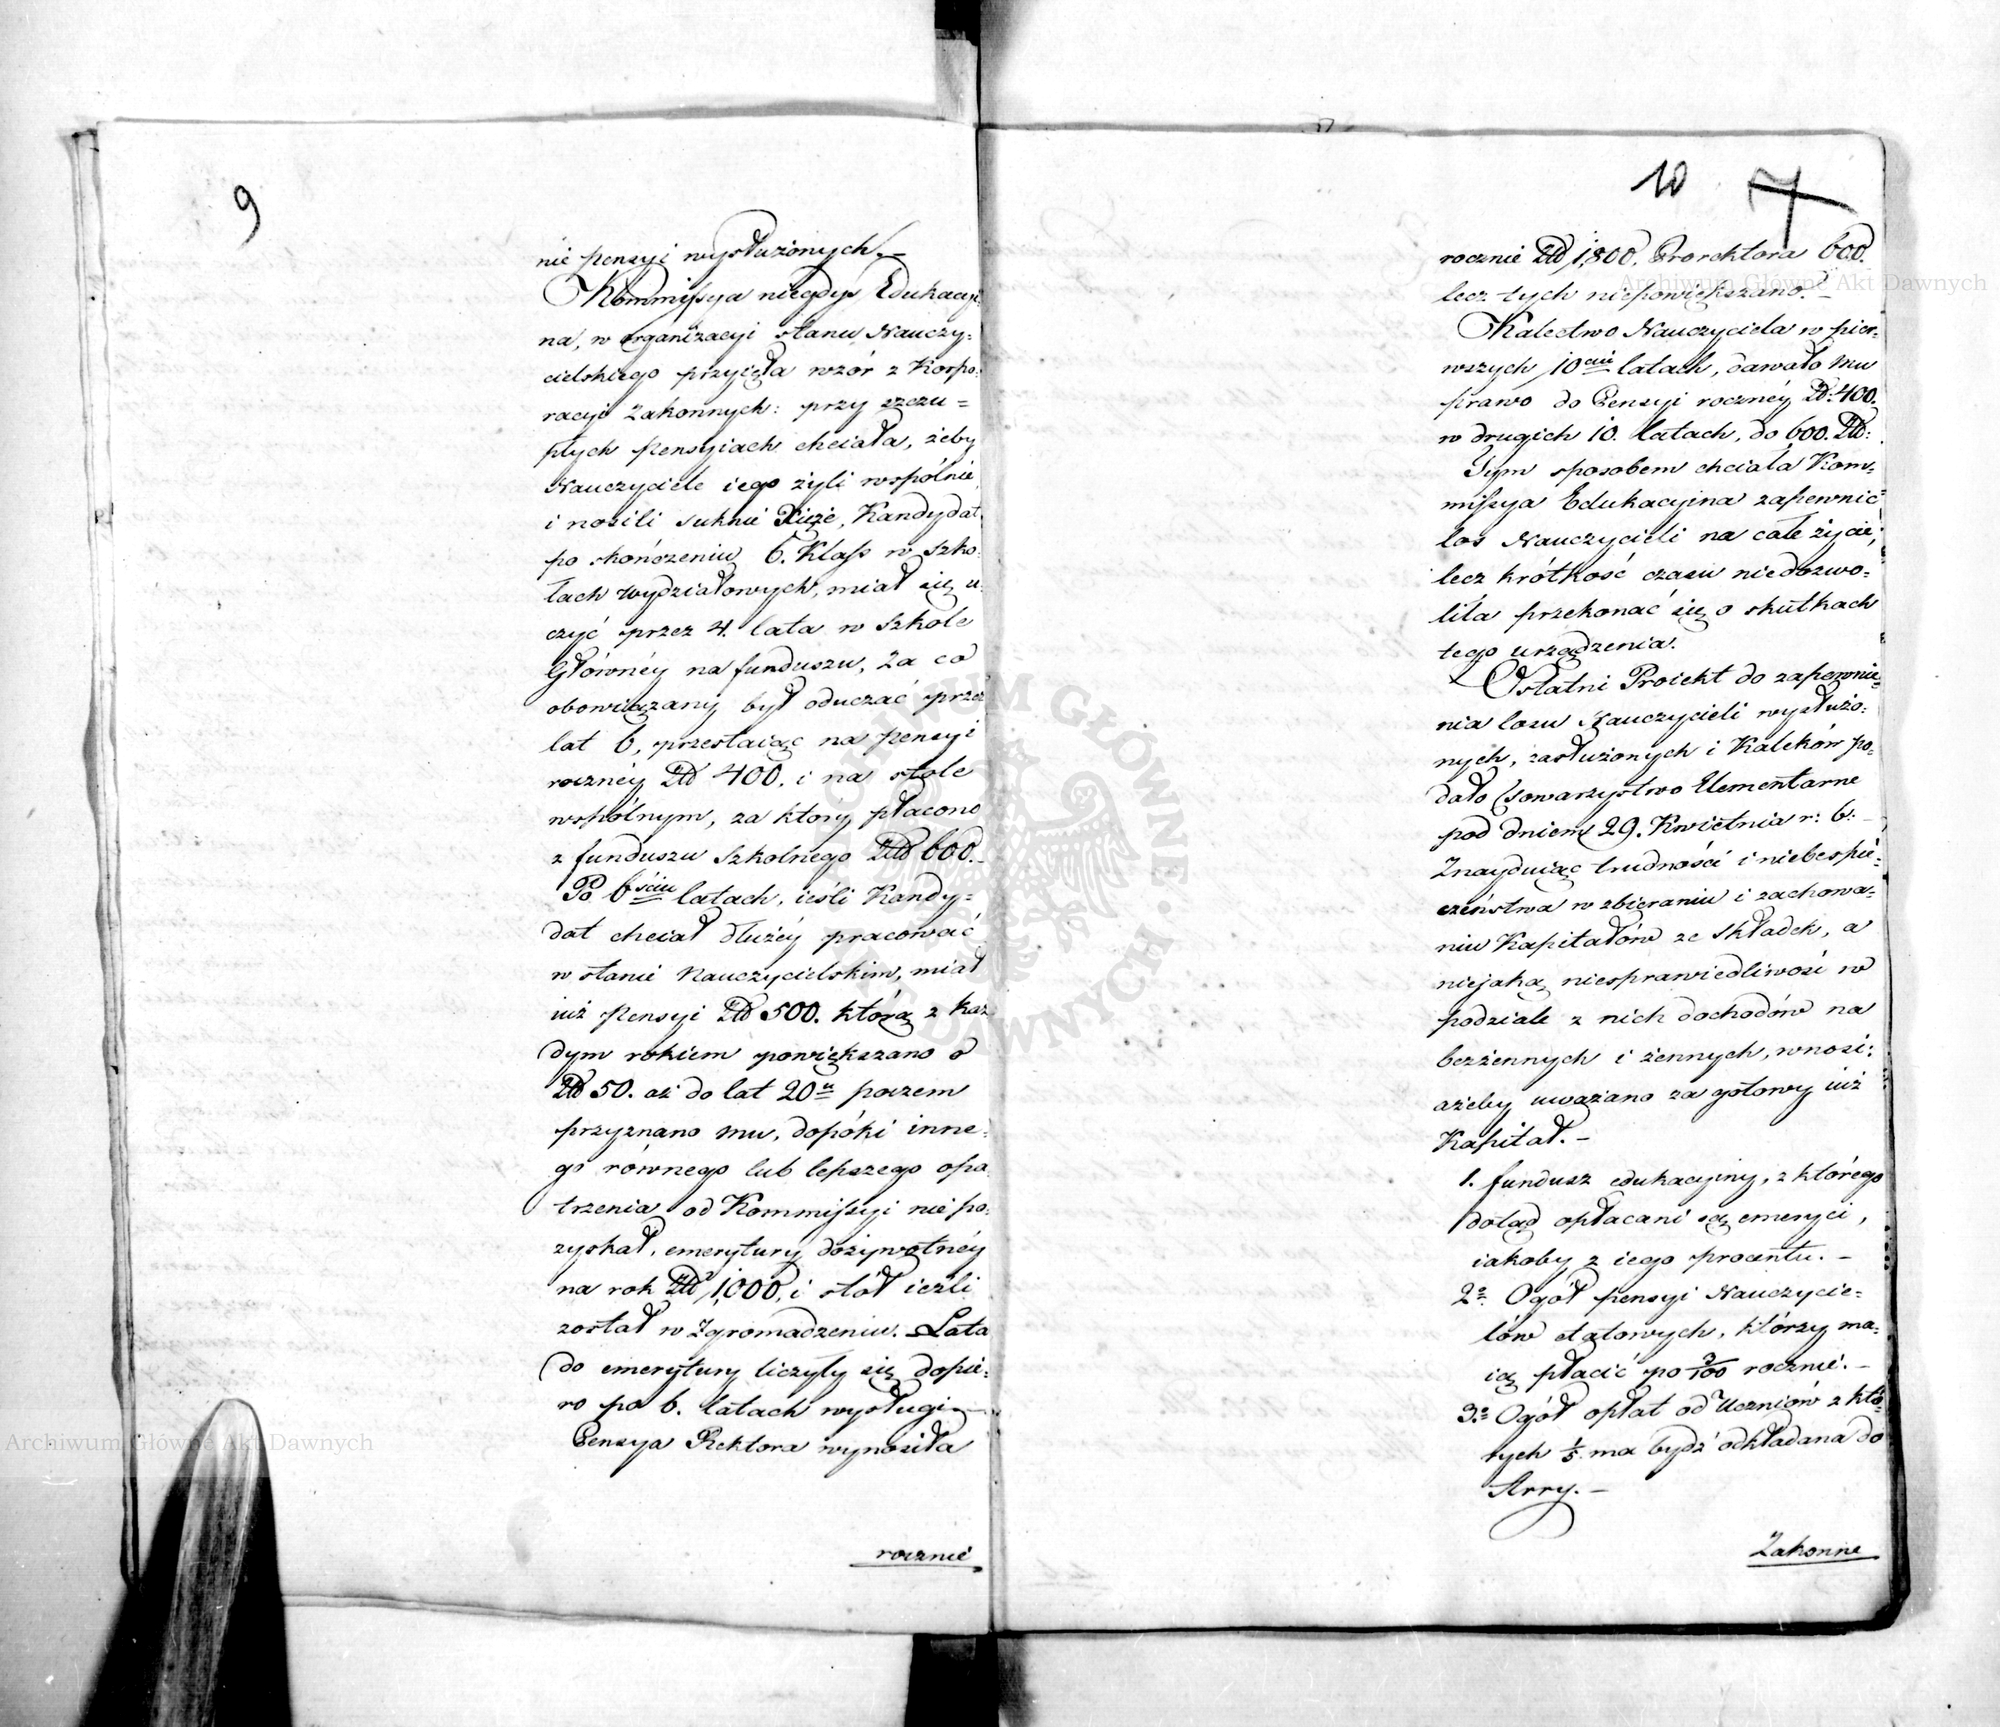 9
nie pensyi wysłużonych. —
Kommissya niegdyś Edukacyi-
na, w organizacyi stanu Nauczy-
cielskiego przyięła wzór z Korpo-
racyi Zakonnych: przy szczu=
płych pensyiach chciała, żeby
Nauczyciele iego żyli wspólnie
i nosili suknie Xięże, Kandydat
po skończeniu 6. Klass w szko-
łach wydziałowych, miał się u-
czyć przez 4. lata w Szkole
Głównéy na funduszu, za co
obowiązany był oduczać przez
lat 6, przestaiąc na pensyi
rocznéy Złd 400. i na stole
wspólnym, za który płacono
z funduszu szkolnego Złd 600. –
Po 6ściu latach, ieśli Kandy=
dat chciał dłużéy pracować
w stanie Nauczycielskim, miał
iuż pensyi Złd 500. którą z każ
dym rokiem powiększano o
Złd 50. aż do lat 20u poczem
przyznano mu, dopóki inne-
go równego lub lepszego opa
trzenia od Kommissyi nie po-
zyskał, emerytury dożywotnéy
na rok Złd 1,000, i stół ieżli
został w Zgromadzeniu. Lata
do emerytury liczyły się dopie-
ro po 6. latach wysługi. —
Pensya Rektora wynosiła
rocznie
10 7
rocznie Złd 1,800. Prorektora 600.
lecz tych niepowiększano. –
Kalectwo Nauczyciela w pier-
wszych 10ciu latach, dawało mu
prawo do Pensyi rocznéy Zł: 400.
w drugich 10. latach, do 600. Złd:
Tym sposobem chciała Kom-
missya Edukacyina zapewnić
los Nauczycieli na całe życie;
lecz krótkość czasu niedozwo-
liła przekonać się o skutkach
tego urządzenia.
Ostatni Proiekt do zapewnie-
nia losu Nauczycieli wysłużo-
nych, zasłużonych i Kaleków po-
dało Towarzystwo Elementarne
pod dniem 29. Kwietnia r: b: –
Znayduiąc trudności i niebespie-
czeństwa w zbieraniu i zachowa-
niu Kapitałów ze składek, a
niejaką niesprawiedliwość w
podziale z nich dochodów na
bezżennych i żennych, wnosi:
ażeby uważano za gotowy iuż
Kapitał. –
1. fundusz edukacyiny, z którego
dotąd opłacani są emeryci,
iakoby z iego procentu. –
2o. Ogół pensyi Nauczycie-
lów etatowych, którzy ma-
ią płacić po 3/100 rocznie. –
3o. Ogół opłat od Uczniów z któ-
rych 1/5 ma bydź odkładana do
Arry. –
Zakonne
Archiwum Główne Akt Dawnych
Archiwum Główne Akt Dawnych
ARCHIWUM GŁÓWNE AKT DAWNYCH